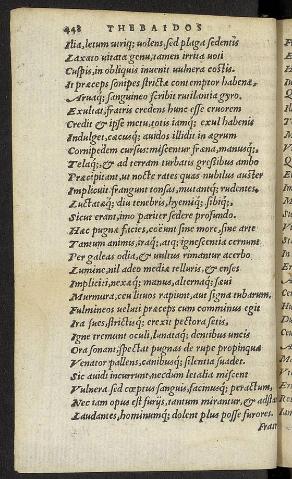 448 THEBAIDOS
Ilia, letum utriq; uolens, sed plaga sedentis
Laxato uitata genu, tamen irrita uoti
Cuspis, in obliquis inuenit uulnera costis.
It præceps sonipes strictæ contemptor habenæ,
Aruaq; sanguineo scribit rutilantia gyro.
Exultat, fratris credens hunc esse cruorem
Credit & ipse metu, totis iamq; exul habenis
Indulget, cæcusq; auidos illidit in ægrum
Cornipedem cursus: miscentur fræna, manusq;
Telaq; & ad terram turbatis gressibus ambo
Præcipitant, ut nocte rates quas nubilus auster
Implicuit, frangunt tonsas, mutantq; rudentes,
Luctatæq; diu tenebris, hyemiq; sibiq;
Sicut erant, imo pariter sedere profundo.
Hæc pugnæ facies, coëunt sine more, sine arte
Tantum animis, iraq; atq; ignescentia cernunt
Per galeas odia, & uultus rimantur acerbo
Lumine, nil adeo mediæ telluris, & enses
Impliciti, nexæq; manus, alternaq; sæui
Murmura, ceu lituos rapiunt, aut signa tubarum.
Fulmineos ueluti præceps cum comminus egit
Ira sues, strictisq; erexit pectora setis,
Igne tremunt oculi, lunataq; dentibus uncis
Ora sonant: spectat pugnas de rupe propinqua
Venator pallens, canibusq; silentia suadet.
Sic auidi incurrunt, necdum letalia miscent
Vulnera sed cœptus sanguis, facinusq; peractum,
Nec iam opus est furijs, tantum mirantur, & adstant
Laudantes, hominumq; dolent plus posse furores.